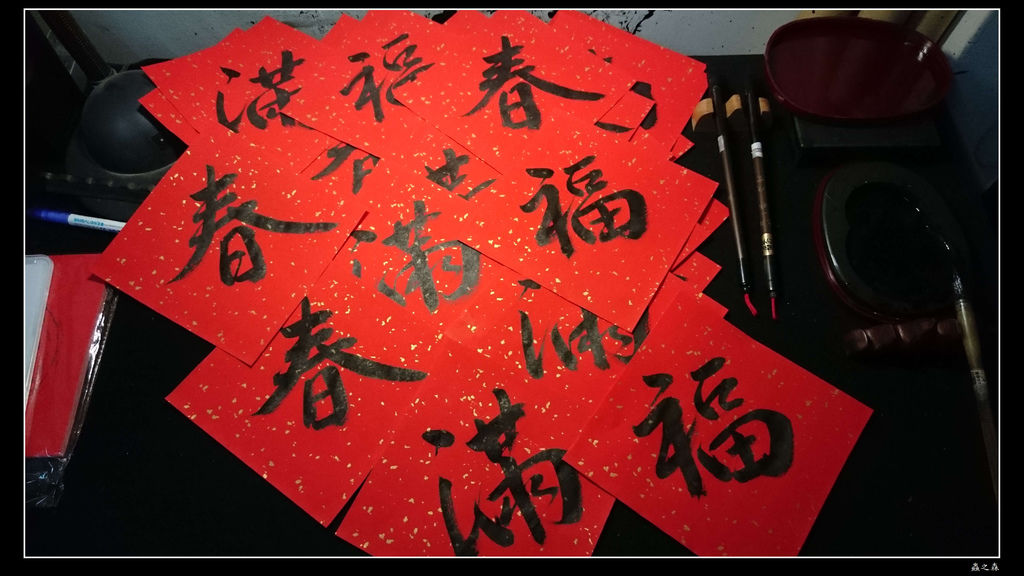 满
福
春
春
满
福
春
满
满
福
蟲之森